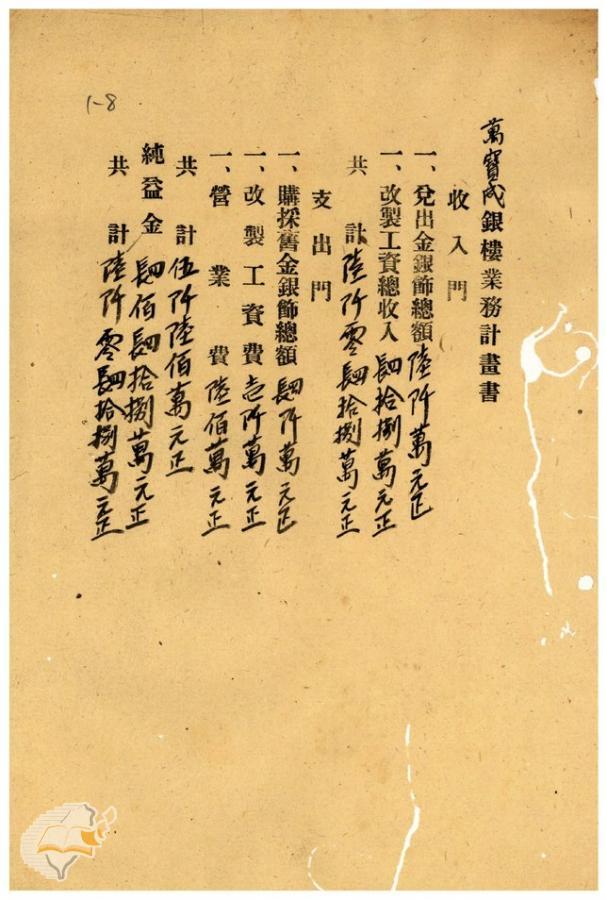 萬寶成銀樓業務計畫書
收入門
一、兌出金銀飾總額陸仟萬元正
一、改製工資總收入肆拾捌萬元正
共計陸仟零肆拾捌萬元正
支出門
一、購採舊金銀飾總額肆仟萬元正
一、改製工資費壱仟萬元正
一、營業費陸佰萬元正
共計伍仟陸佰萬元正
純益金肆佰肆拾捌萬元正
共計陸仟零肆拾捌萬元正
1-8